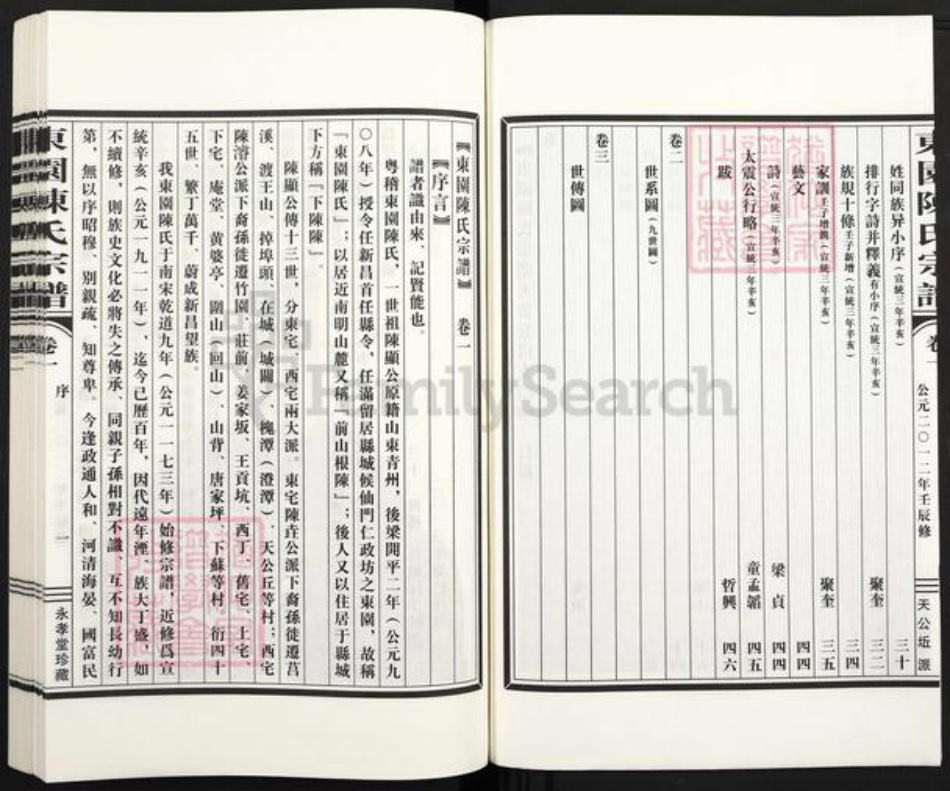 東園陳氏宗譜
卷一
公元二〇一二年壬辰修
天公坵派
姓同族异小序（宣統三年辛亥） 三十
排行字詩并釋義有小序（宣統三年辛亥） 聚奎 三二
族規十條壬子新增（宣統三年辛亥） 三四
家訓壬子增撰（宣統三年辛亥） 聚奎 三五
藝文 四四
詩（宣統三年辛亥） 梁貞 四四
太震公行略（宣統三年辛亥） 童孟韜 四五
跋 哲興 四六
卷二
世系圖（九世圖）
卷三
世傳圖
《東園陳氏宗譜》 卷一
『序言』
譜者識由來、記賢能也。
粵稽東園陳氏，一世祖陳顯公原籍山東青州，後梁開平二年（公元九
〇八年）授令任新昌首任縣令，任滿留居縣城候仙門仁政坊之東園，故稱
「東園陳氏」；以居近南明山麓又稱「前山根陳」；後人又以住居于縣城
下方稱「下陳陳」。
陳顯公傳十三世，分東宅、西宅兩大派。東宅陳垚公派下裔孫徙遷莒
溪、渡王山、掉埠頭、在城（城關）、槐潭（澄潭）、天公丘等村；西宅
陳溶公派下裔孫徙遷竹園、莊前、姜家坂、王貢坑、西丁、舊宅、上宅、
下宅、庵堂、黄婆亭、圍山（回山）、山背、唐家坪、下蘇等村。衍四十
五世，繁丁萬千，蔚成新昌望族。
我東園陳氏于南宋乾道九年（公元一一七三年）始修宗譜，近修爲宣
統辛亥（公元一九一一年），迄今已歷百年，因代遠年湮，族大丁盛，如
不續修，則族史文化必將失之傳承、同親子孫相對不識、互不知長幼行
第，無以序昭穆、別親疏、知尊卑。今逢政通人和、河清海晏、國富民
東園陳氏宗譜
卷一
序
一
永孝堂珍藏
FamilySearch